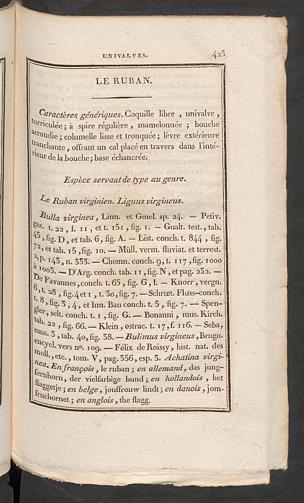 UNIVALVES. 423
LE RUBAN.
Caractères génériques. Coquille libre, univalve,
turriculée; à spire régulière, mamelonnée; bouche
arrondie; columelle lisse et tronquée; lèvre extérieure
tranchante, offrant un cal placé en travers dans l'inté-
rieur de la bouche; base échancrée.
Espèce servant de type au genre.
Le Ruban virginien. Liguus virgineus.
Bulla virginea, Linn. et Gmel. sp. 24. — Petiv.
gaz. t. 22, f. 11, et t. 151, fig. 1. — Gualt. test., tab.
45, fig. D, et tab. 6, fig. A. — List. conch. t. 844, fig.
72, et tab. 15, fig. 10. — Müll. verm. fluviat. et terrest.
2, p. 143, n. 333. — Chemn. conch. 9, t. 117, fig. 1000
à 1003. — D'Arg. conch. tab. 11, fig. N, et pag. 252. —
De Favannes, conch. t. 65, fig. G, 1. — Knorr, vergn.
6, t. 28, fig. 4 et 1, t. 30, fig. 7. — Schrœt. Fluss-conch.
t. 8, fig. 3, 4, et Inn. Bau conch. t. 5, fig. 7. — Spen-
gler, selt. conch. t. 1, fig. G. — Bonanni, mus. Kirch.
tab. 22, fig. 66. — Klein, ostrac. t. 17, f. 116. — Seba,
mus. 3, tab. 40, fig. 38. — Bulimus virgineus, Brugu.
encycl. vers nº. 109. — Félix de Roissy, hist. nat. des
moll., etc., tom. V, pag. 356, esp. 3. Achatina virgi-
nea. En françois, le ruban; en allemand, das jung-
fernhorn, der vielfarbige bund; en hollandois, het
flaggetje; en belge, jouffrouw lindt; en danois, jom-
fruehornet; en anglois, the flagg.